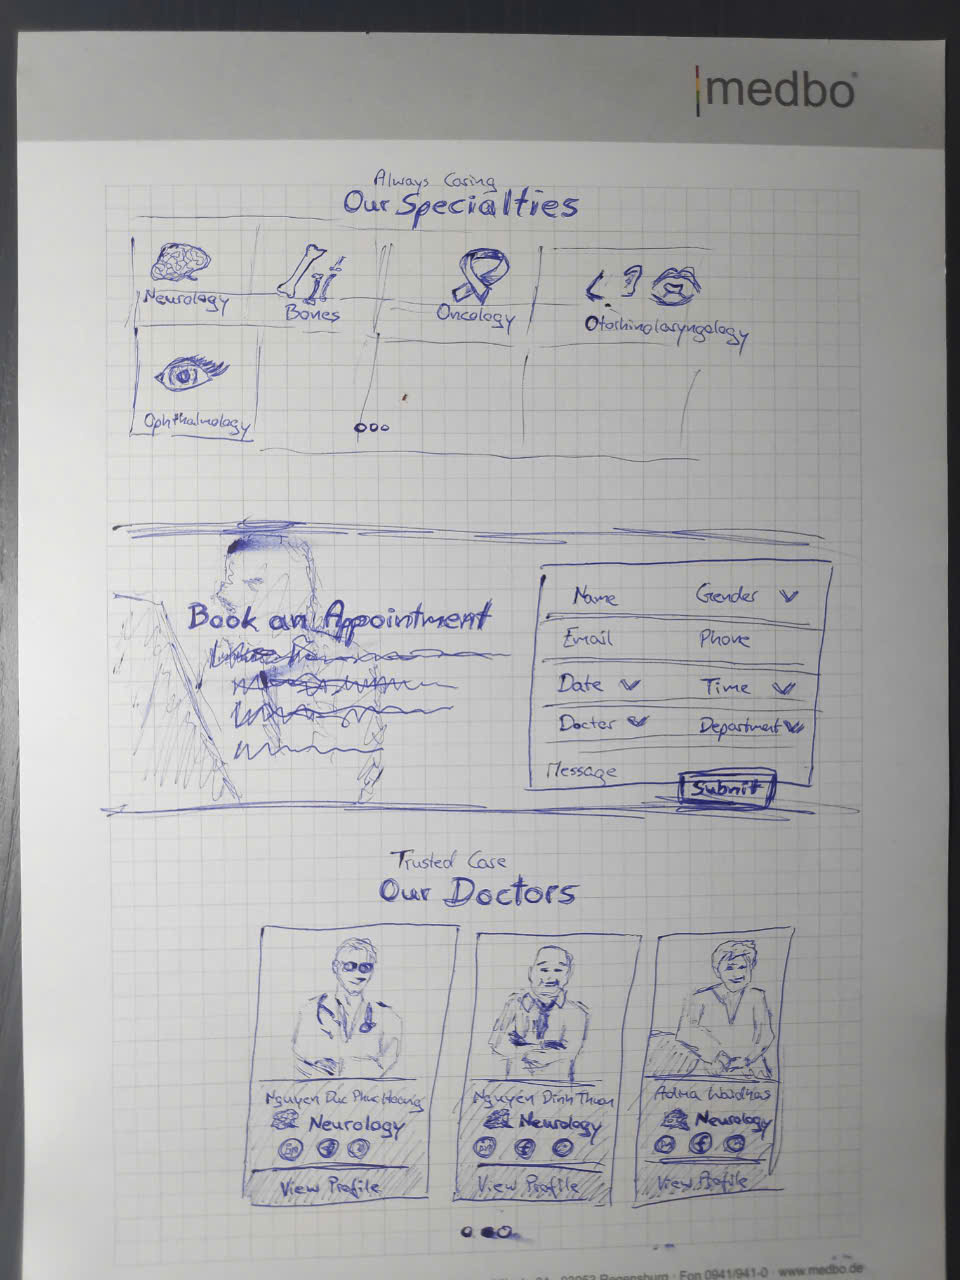 medbo
Always Caring
Our Specialties
Neurology
Bones
Oncology
Otorhinolaryngology
Ophthalmology
Book an Appointment
Name Gender
Email Phone
Date Time
Doctor Department
Message
Submit
Trusted Care
Our Doctors
Nguyen Duc Phuc Hoang
Neurology
View Profile
Nguyen Dinh Thuan
Neurology
View Profile
Neurology
View Profile
93053 Regensburg · Fon 0941/941-0 · www.medbo.de